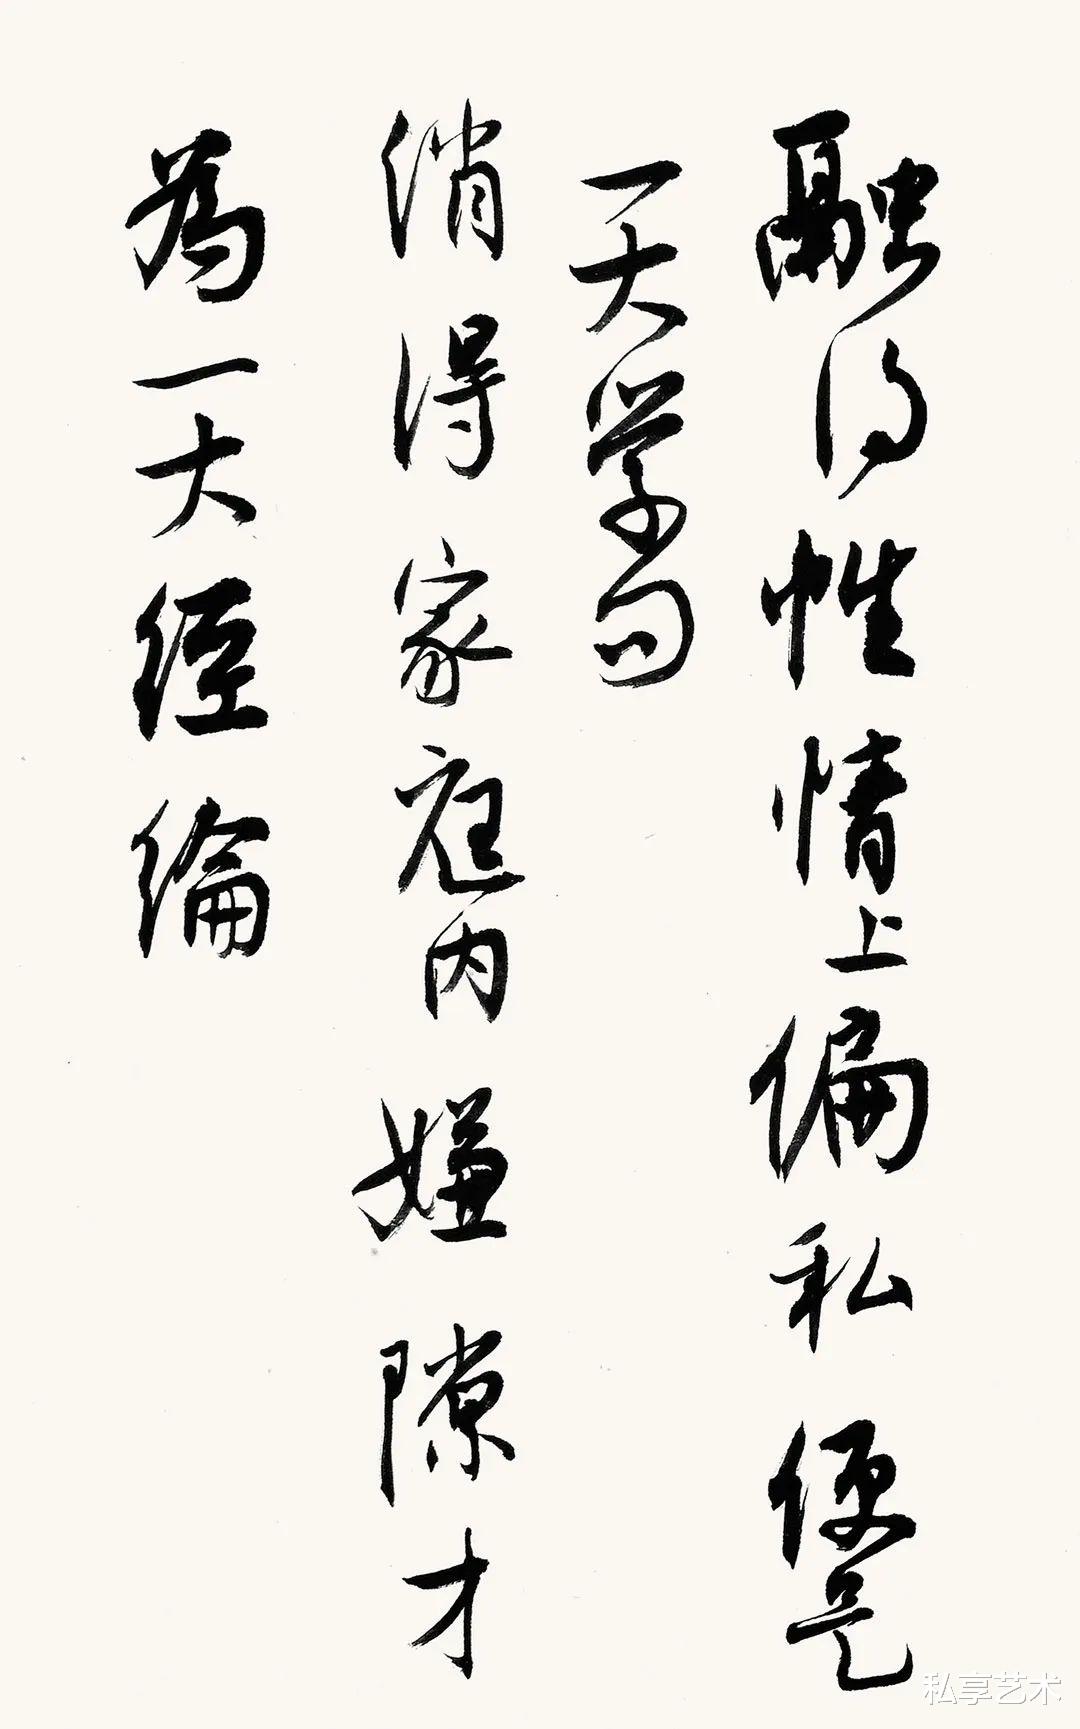 融得性情上偏私便是
一大学问
消得家庭内嫌隙才
為一大經綸
私享艺术